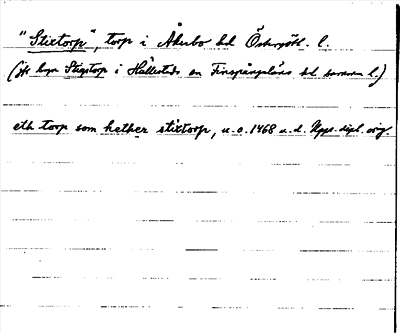 "Stixtorp", torp i Åkerbo hd Östergötl. l.
(Jfr byn Stigstorp i Hällestads sn Finspångaläns hd samma l.)
eth torp som hether stixtorp, u.o. 1468 u.d. Upps. dipl. orig.